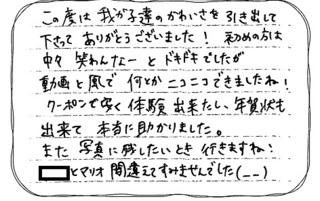 この度は我が子達のかわいさを引き出して
下さってありがとうございました！初めの方は
中々笑わんなーとドキドキでしたが
動画と風で何とかニコニコできましたね！
クーポンで安く体験出来たし、年賀状も
出来て本当に助かりました。
また写真に残したいとき行きますね！
とマリオ間違えてすみませんでした(__)